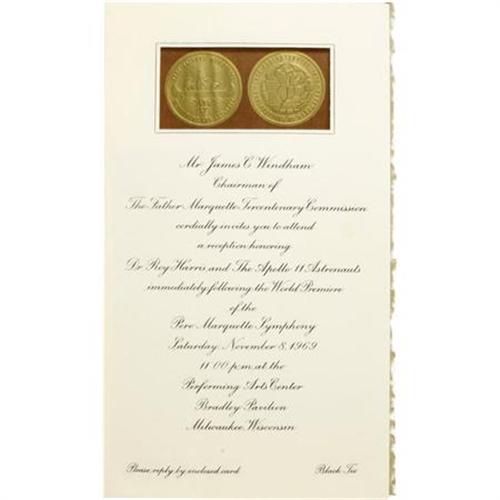 Mr. James C. Windham
Chairman of
The Father Marquette Tercentenary Commission
cordially invites you to attend
a reception honoring
Dr. Roy Harris and The Apollo 11 Astronauts
immediately following the World Premiere
of the
Pere Marquette Symphony
Saturday, November 8, 1969
11:00 p.m. at the
Performing Arts Center
Bradley Pavilion
Milwaukee, Wisconsin
Please reply by enclosed card
Black Tie